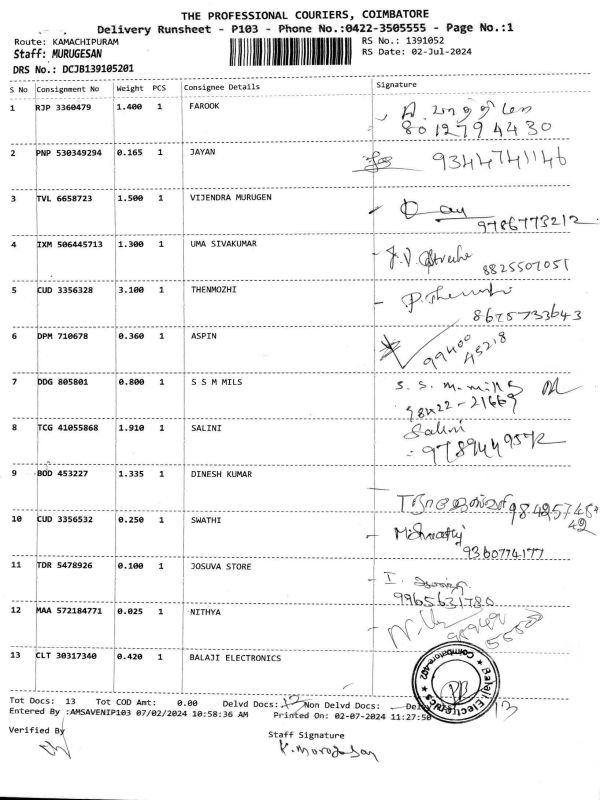 THE PROFESSIONAL COURIERS, COIMBATORE
Delivery Runsheet - P103 - Phone No.:0422-3505555 - Page No.:1
Route: KAMACHIPURAM
RS No.: 1391052
Staff: MURUGESAN
RS Date: 02-Jul-2024
DRS No.: DCJB139105201
S No Consignment No Weight PCS Consignee Details Signature
1 RJP 3360479 1.400 1 FAROOK
8012794430
2 PNP 530349294 0.165 1 JAYAN 9344741146
3 TVL 6658723 1.500 1 VIJENDRA MURUGEN
9786773212
4 IXM 506445713 1.300 1 UMA SIVAKUMAR
8825507051
5 CUD 3356328 3.100 1 THENMOZHI
8675733643
6 DPM 710678 0.360 1 ASPIN
99400
45218
7 DDG 805801 0.800 1 S S M MILS S. S. M. mills
98422-21669
8 TCG 41055868 1.910 1 SALINI Salini
9789449572
9 BOD 453227 1.335 1 DINESH KUMAR
98425748
42
10 CUD 3356532 0.250 1 SWATHI
9360774177
11 TDR 5478926 0.100 1 JOSUVA STORE
9965631780
12 MAA 572184771 0.025 1 NITHYA
13 CLT 30317340 0.420 1 BALAJI ELECTRONICS
Balaji Electronics ★ Coimbatore-402 ★
Tot Docs: 13 Tot COD Amt: 0.00 Delvd Docs: 13 Non Delvd Docs: 13
Entered By :AMSAVENIP103 07/02/2024 10:58:36 AM Printed On: 02-07-2024 11:27:50
Verified By
Staff Signature
K. Murugesan